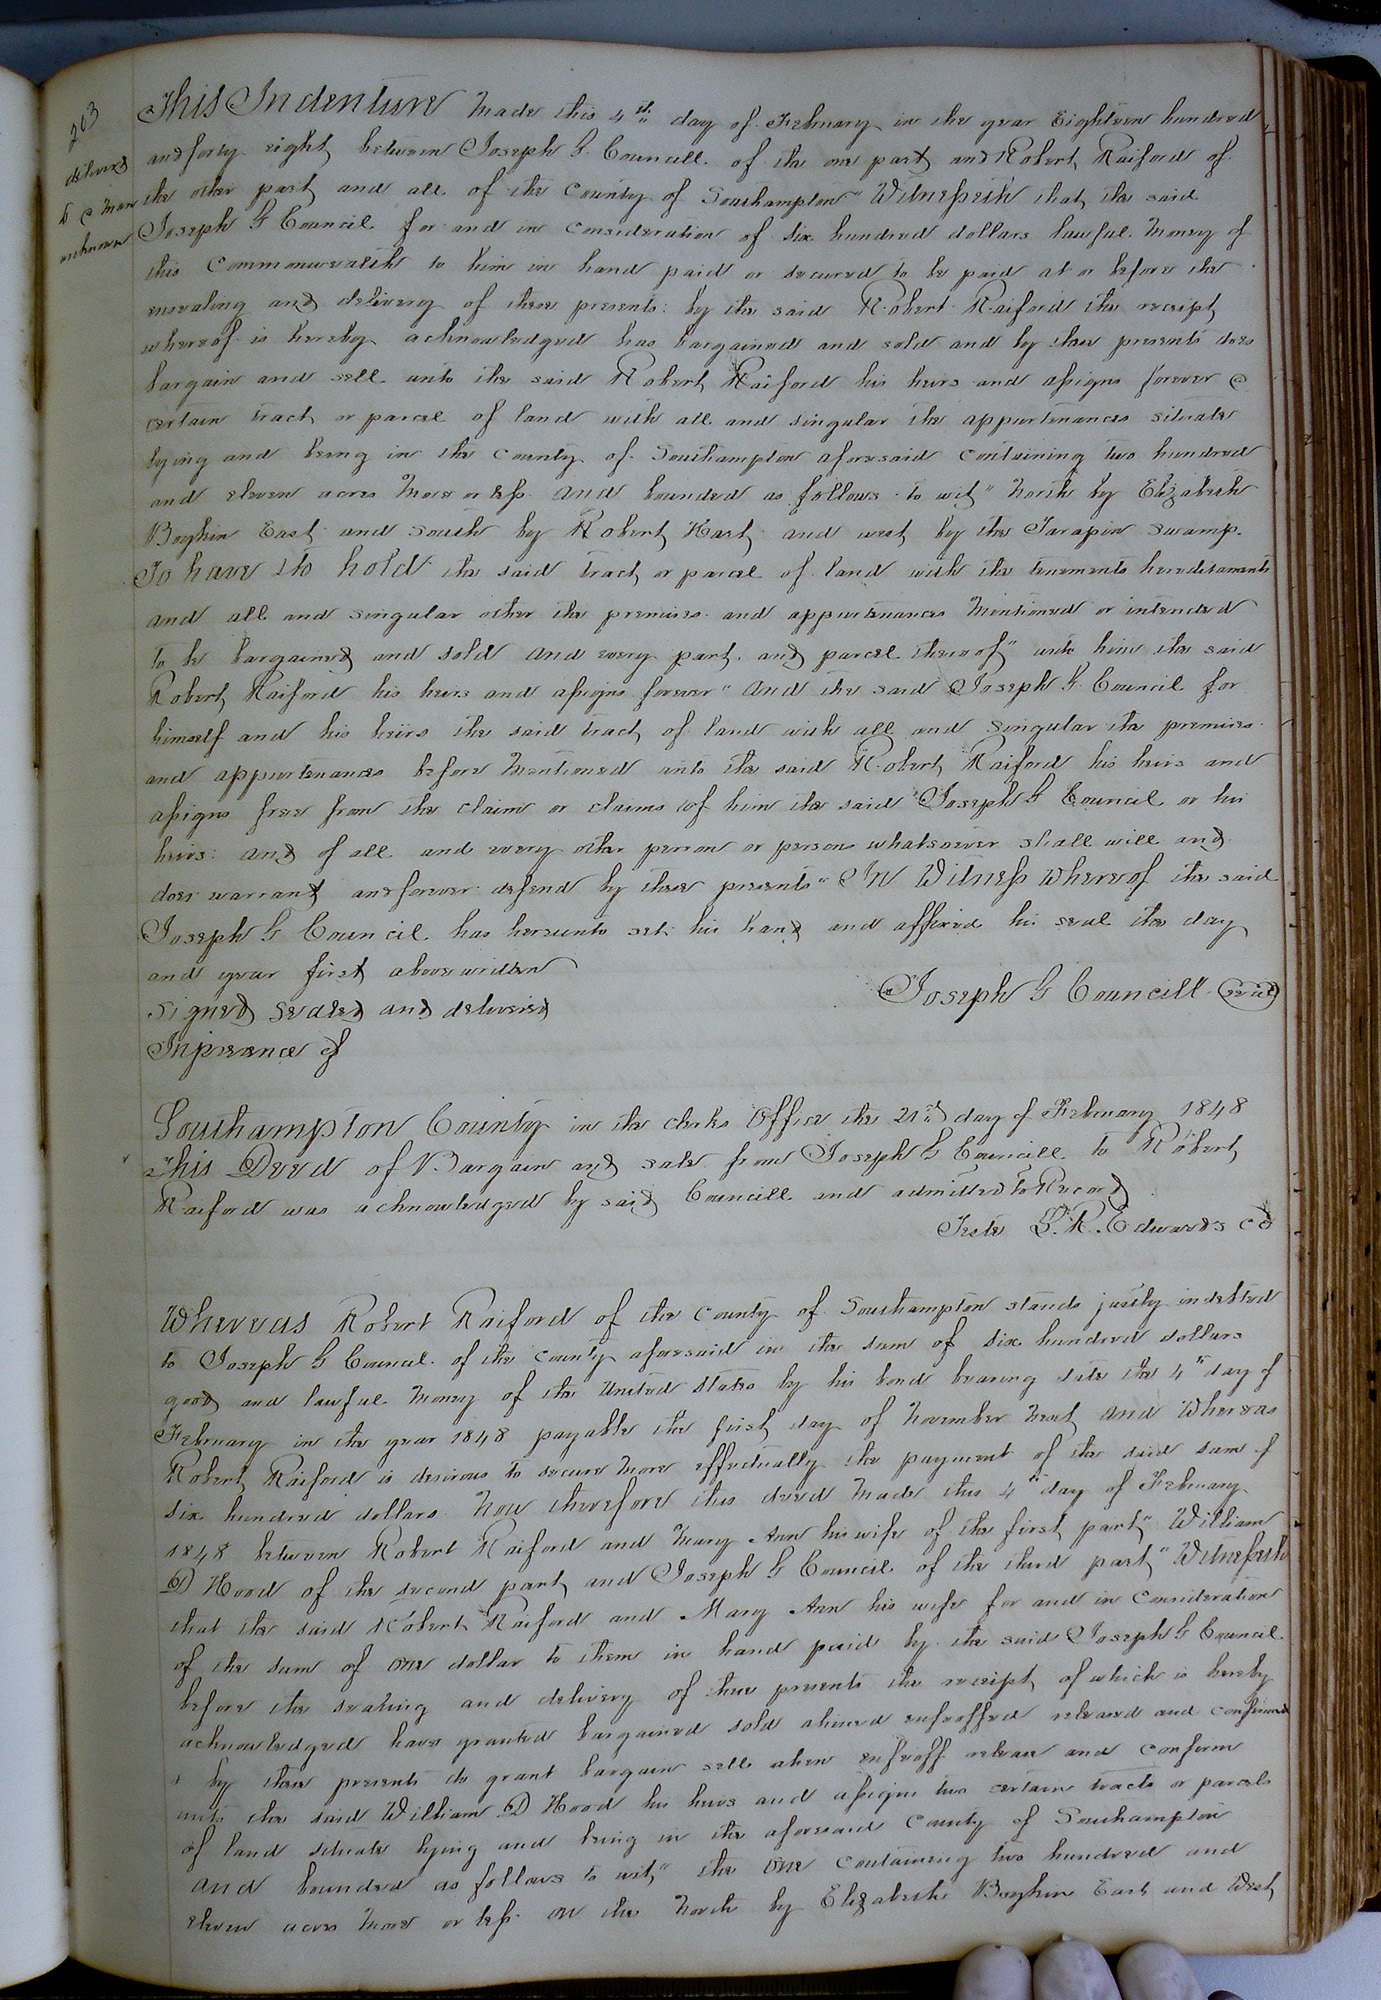 203
delivered
to C Man
unknown
This Indenture Made this 4th day of February in the year Eighteen hundred
and forty eight between Joseph G. Councill of the one part and Robert Raiford of
the other part and all of the County of Southampton" Witnesseth that the said
Joseph G Council for and in consideration of six hundred dollars lawful Money of
this Commonwealth to him in hand paid or secured to be paid at or before the
ensealing and delivery of these presents by the said Robert Raiford the receipt
whereof is hereby acknowledged has bargained and sold and by these presents does
bargain and sell unto the said Robert Raiford his heirs and assigns forever a
certain tract or parcel of land with all and singular the appurtenances situate
lying and being in the County of Southampton aforesaid containing two hundred
and eleven acres More or less and bounded as follows to wit" North by Elizabeth
Boykin East and South by Robert Hart and west by the Tarapin Swamp.
To have to hold the said tract or parcel of land with the tenements heredetaments
and all and singular other the premises and appurtenances Mentioned or intended
to be bargained and sold and every part and parcel thereof" unto him the said
Robert Raiford his heirs and assigns forever" And the said Joseph G. Council for
himself and his heirs the said tract of land with all and Singular the premises
and appurtenances before Mentioned unto the said Robert Raiford his heirs and
assigns free from the claim or claims of him the said Joseph G Council or his
heirs and of all and every other person or persons whatsoever shall will and
does warrant and forever defend by these presents" In Witness whereof the said
Joseph G Council has hereunto set his hand and affixed his seal the day
and year first above written
Joseph G Councill seal
Signed Sealed and delivered
In presence of
Southampton County in the clerks Office the 21st day of February 1848
This Deed of Bargain and sale from Joseph G Councill to Robert
Raiford was acknowledged by said Councill and admitted to Record
Teste L. R. Edwards CC
Whereas Robert Raiford of the County of Southampton stands justly indebted
to Joseph G Council of the County aforesaid in the sum of six hundred dollars
good and lawful Money of the United States by his bond bearing date the 4th day of
February in the year 1848 payable the first day of November Next and Whereas
Robert Raiford is desirous to secure More effectually the payment of the said sum of
six hundred dollars Now therefore this deed Made this 4th day of February
1848 between Robert Raiford and Mary Ann his wife of the first part" William
D Hood of the second part and Joseph G Council of the third part" Witnesseth
that the said Robert Raiford and Mary Ann his wife for and in Consideration
of the sum of one dollar to them in hand paid by the said Joseph G Council
before the sealing and delivery of these presents the receipt of which is hereby
acknowledged have granted bargained sold aliened enfeoffed released and confirmed
by these presents do grant bargain sell alien enfeoff release and confirm
unto the said William D Hood his heirs and assigns two certain tracts or parcels
of land situate lying and being in the aforesaid County of Southampton
and bounded as follows to wit" the one Containing two hundred and
eleven acres More or less on the North by Elizabeth Boykin East and West